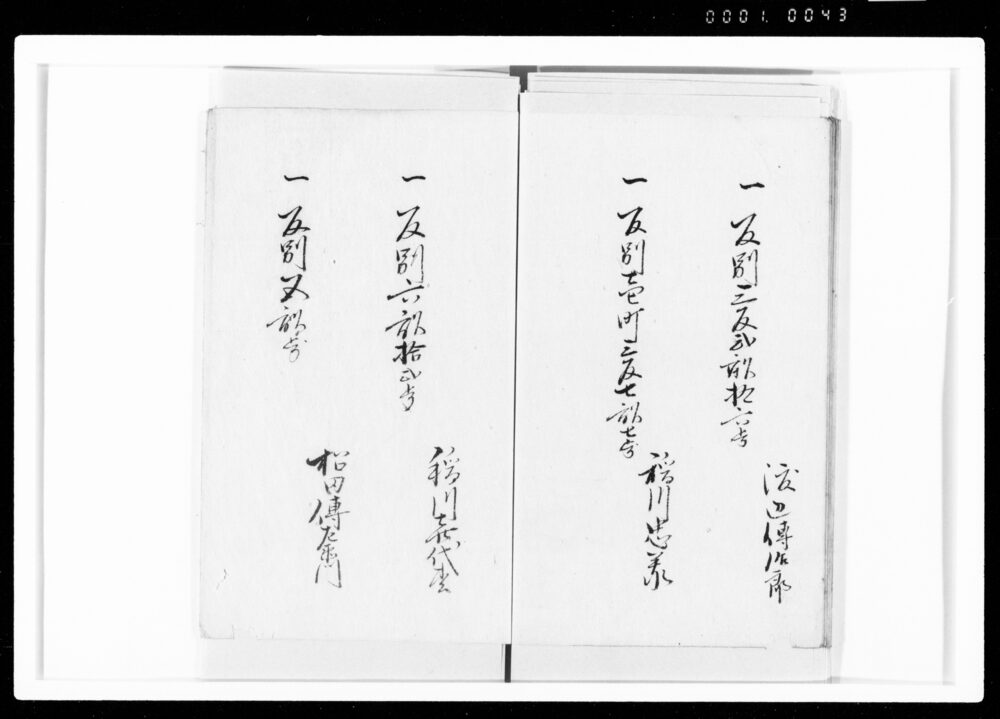 0001.0043
一 反別三反弐畝拾六歩
渡辺傳治郎
一 反別壱町三反七畝七歩
稲川忠義
一 反別六畝拾弐歩
稲川喜代
一 反別五畝歩
松田傳左衛門